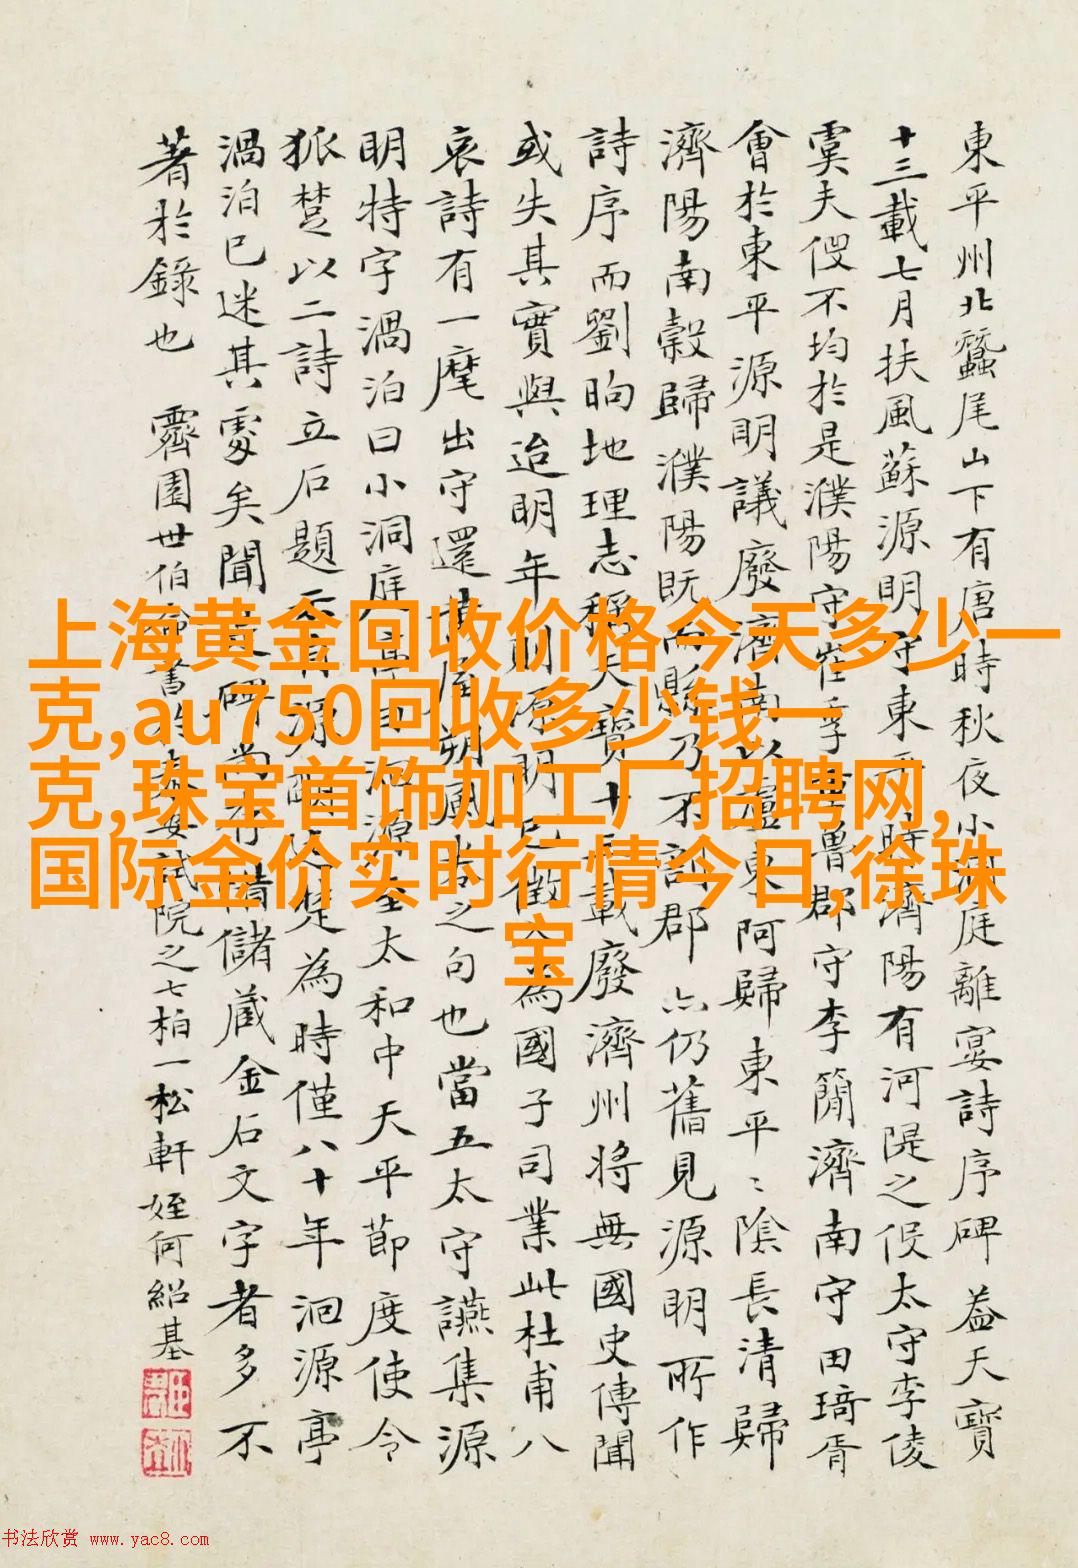 東平州北蠶尾山下有唐時秋夜小洞庭離宴詩序碑 葢天寶
十三載七月扶風蘇源明守東平時濟陽有河隄之役太守李倰
虞夫役不均於是濮陽守崔季重魯郡守李簡濟南守田琦胥
會於東平源明議廢濟南以盧東阿歸東平〻陰長清歸
濟陽南穀歸濮陽既而縣乃不計郡亦仍舊見源明所作
詩序而劉昫地理志稱天寶十三載廢濟州將無國史傳聞
或失其實與迨明年則源明已徵為國子司業此杜甫八
哀詩有一麾出守還之句也當五太守讌集源
明特字渦泊曰小洞庭洄源至太和中天平節度使令
狐楚以二詩立石題云為時僅八十年洄源亭
渦泊已迷其處矣聞儲蔵金石文字者多不
著於錄也 霽園世伯命書於泰安試院之七柏一松軒 姪何紹基
上海黄金回收价格今天多少一
克,au750回收多少钱一
克,珠宝首饰加工厂招聘网,
国际金价实时行情今日,徐珠
宝
书法欣赏 www.yac8.com